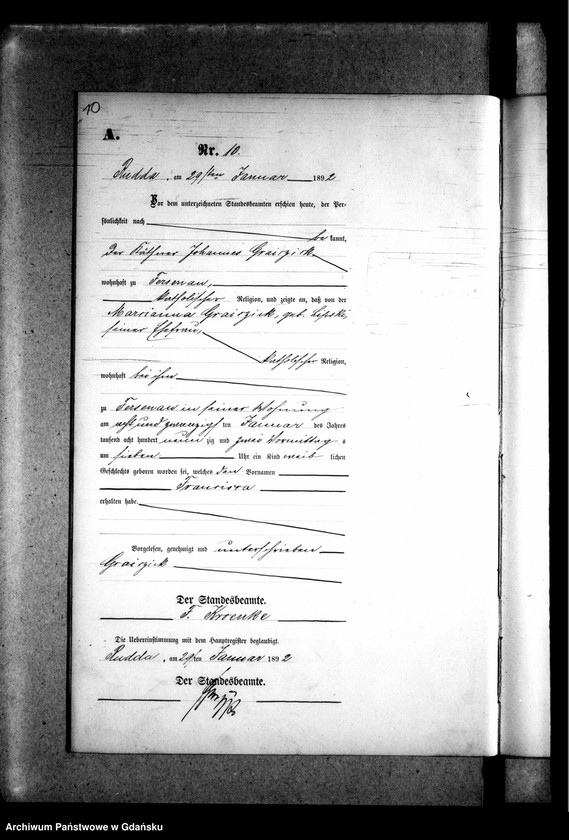 10
A.
Nr. 10.
Rudda, am 29sten Januar 1892
Vor dem unterzeichneten Standesbeamten erschien heute, der Per-
sönlichkeit nach
be kannt,
der Käthner Johannes
wohnhaft zu
katholischer Religion, und zeigte an, daß von der
Marrianna geb.
seiner Ehefrau,
katholischer Religion,
wohnhaft bei ihm
zu in seiner Wohnung
am acht und zwanzig ten Januar des Jahres
tausend acht hundert neun zig und zwei Vormittag s
um sieben Uhr ein Kind weib lichen
Geschlechts geboren worden sei, welches den Vornamen
erhalten habe.
Vorgelesen, genehmigt und unterschrieben
Der Standesbeamte.
F. Kroenke
Die Uebereinstimmung mit dem Hauptregister beglaubigt.
Rudda, am 29sten Januar 1892
Der Standesbeamte.
Archiwum Państwowe w Gdańsku